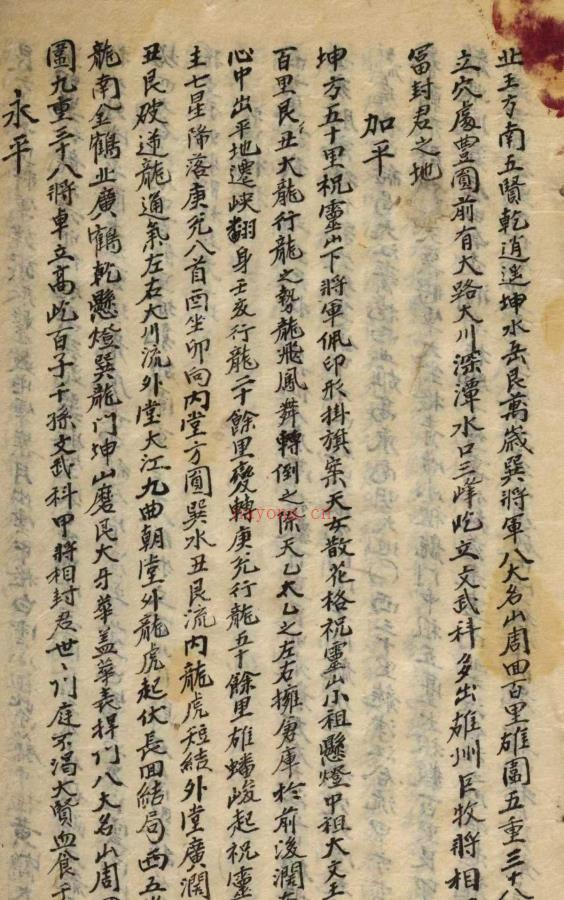 北玉方南五賢乾逍遥坤水岳艮萬歲巽將軍八大名山周回百里雄圖五重三十八
立穴處豊圓前有大路大川深潭水口三峰屹立文武科多出雄州巨牧將相
冨封君之地
加平
坤方五十里祝靈山下將軍佩印形掛旗案天女散花格祝靈山小祖懸燈中祖大文王
百里艮丑大龍行龍之勢龍飛鳳舞轉倒之際天乙太乙之左右擁倉庫於前後濶
心中出平地遷峽翻身壬亥行龍二十餘里變轉庚兌行龍五十餘里雄蟠峻起祝靈
主七星降落庚兌八首酉坐卯向内堂方圓巽水丑艮流内龍虎短結外堂廣濶
丑艮破逆龍通氣左右大川流外堂大江九曲朝堂外龍虎起伏長回結局西五
龍南金鶴北廣鶴乾懸燈巽龍门坤山磨艮大牙華盖華表捍门八大名山周
圖九重三十八將卓立高屹百子千孫文武科甲將相封君世〻门庭不渴大賢血食千
永平
hayong.cn